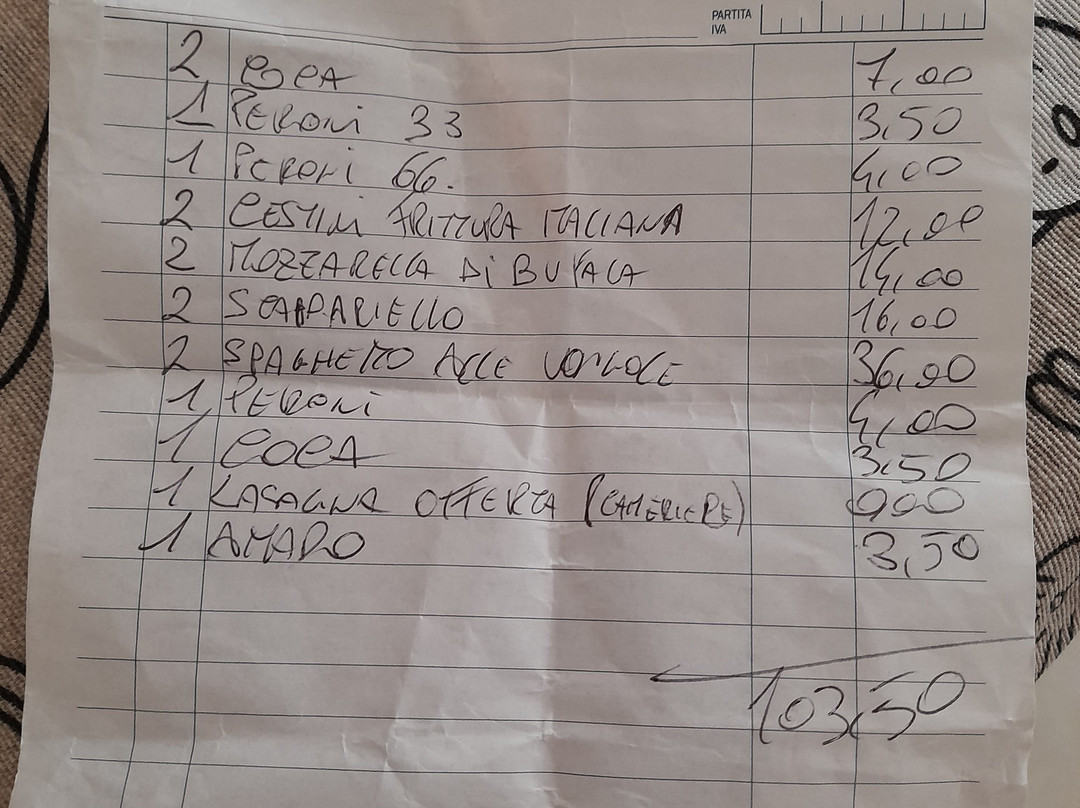 PARTITA
IVA
2 COCA 7,00
1 PERONI 33 3,50
1 PERONI 66. 4,00
2 CESTINI FRITTURA ITALIANA 12,00
2 MOZZARELLA Di BUFALA 14,00
2 SCARPARIELLO 16,00
2 SPAGHETTO ALLE VONGOLE 36,00
1 PERONI 4,00
1 COCA 3,50
1 LASAGNA OFFERTA (CAMERIERE) 000
1 AMARO 3,50
103,50